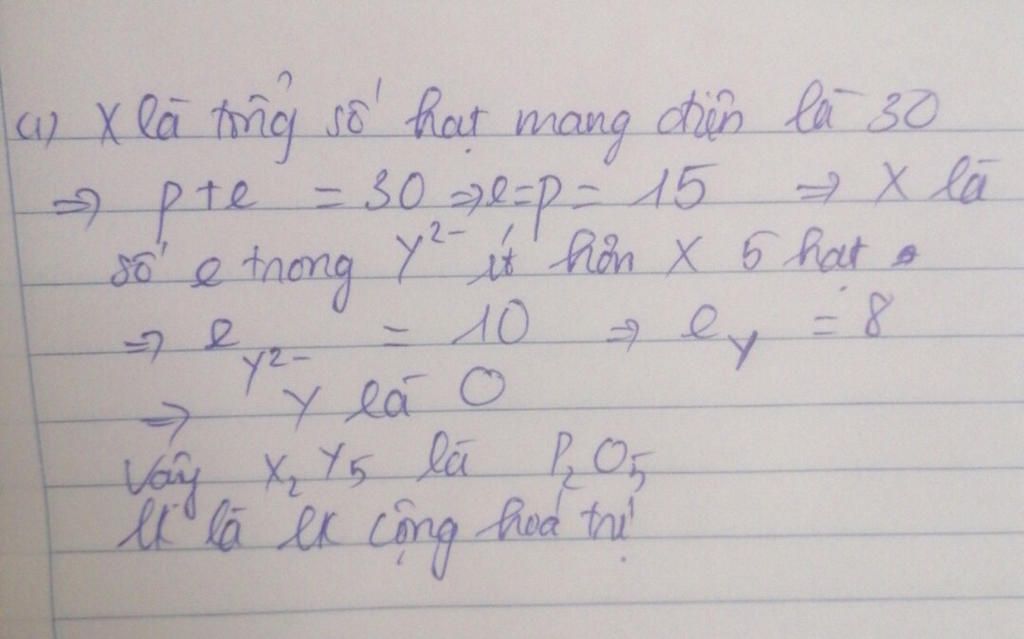 a) X là tổng số hạt mang điện là 30
=> p+e = 30 => e=p = 15 => X là
số e trong Y²⁻ ít hơn X 5 hạt.
=> e_Y²⁻ = 10 => e_Y = 8
=> Y là O
Vậy X₂Y₅ là P₂O₅
lk là lk cộng hoá trị